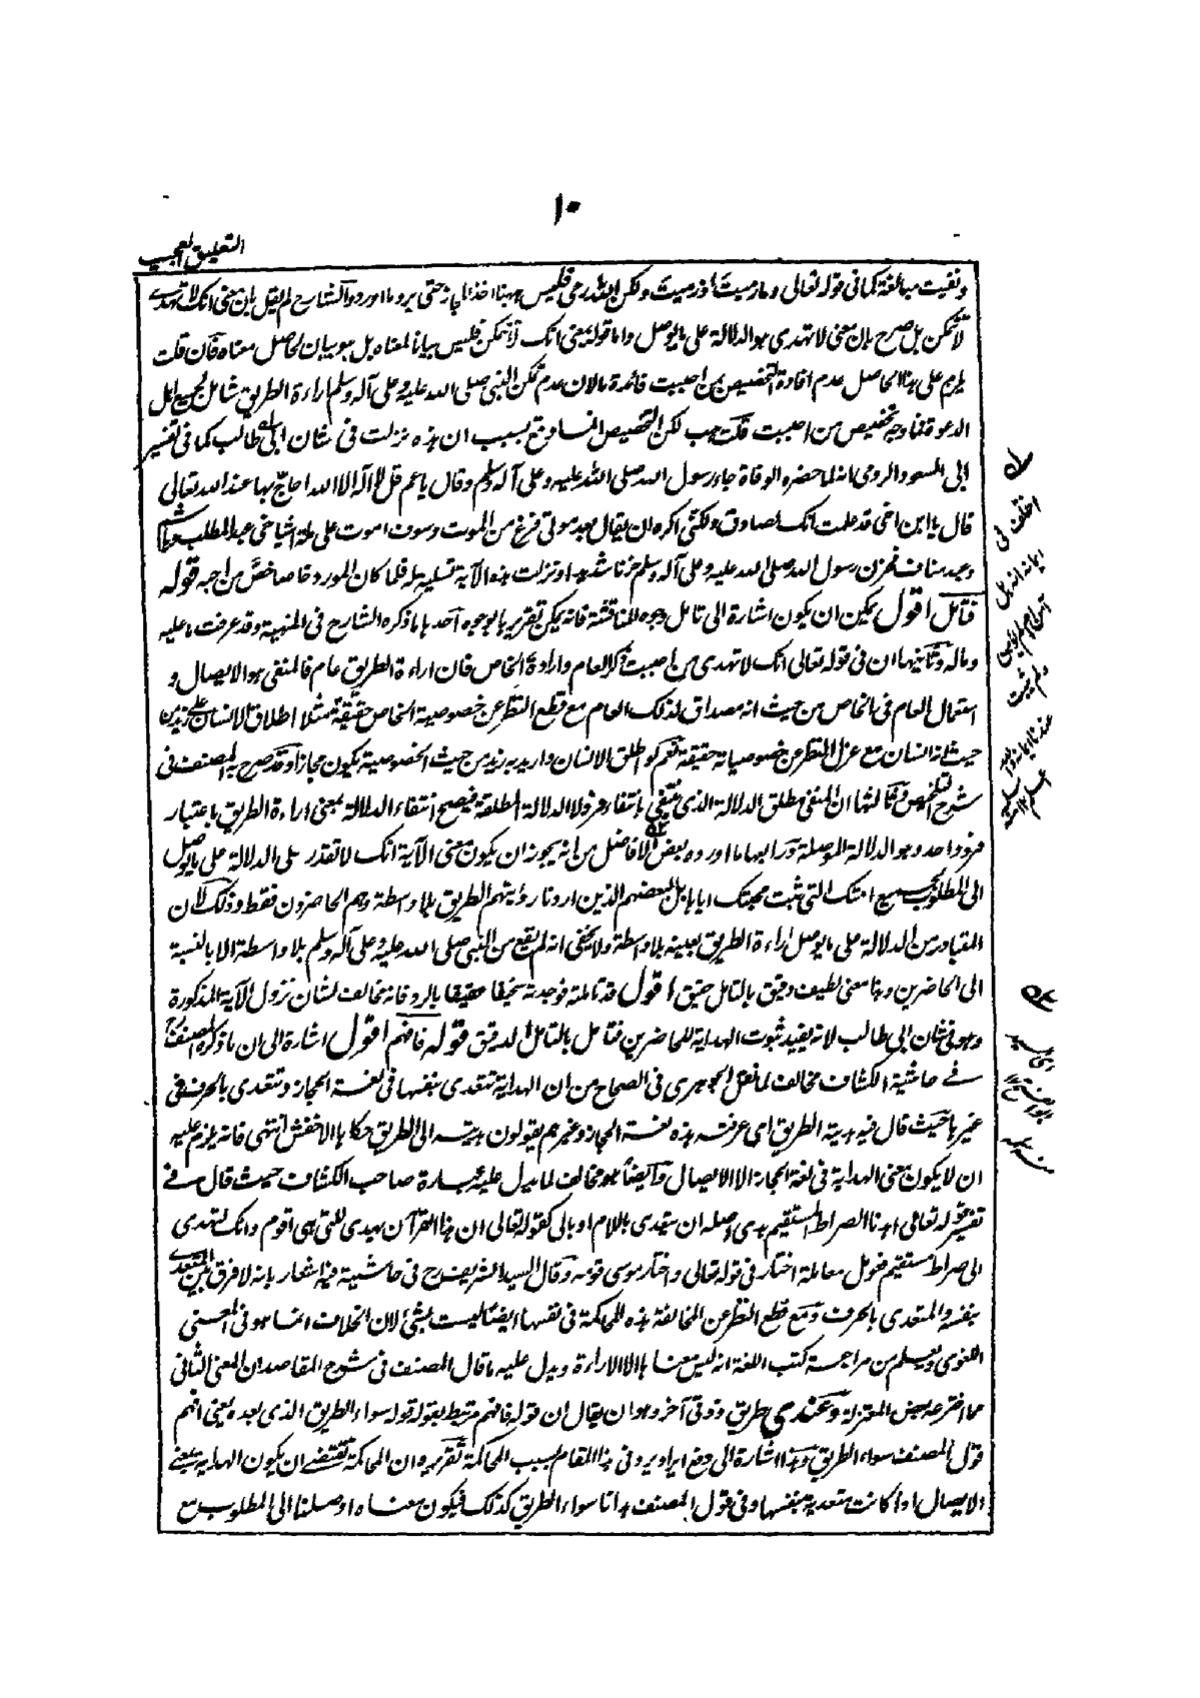 ١٠
التعليق العجيب
ونفيت مبالغة كما في قوله تعالى وما رميت اذ رميت ولكن الله رمى فليس ههنا اخذ المجاز حتى يرد ما اورد والشارح لم يقل بان معنى انك لا تهدي
لا تمكن بل صرح بان معنى لا تهدي هو الدلالة على ما يوصل واما قوله بمعنى انك لا تمكن فليس بيانا لمعناه بل هو بيان لحاصل معناه فان قلت
يلزم على هذا الحاصل عدم افادة التخصيص بمن احببت فائدة ما لان عدم تمكن النبي صلى الله عليه وعلى آله وسلم اراءة الطريق شامل لجميع اهل
الدعوة فما وجه تخصيص من احببت قلت هب لكن التخصيص انما وقع بسبب ان هذه نزلت في شان ابي طالب كما في تفسير
ابي السعود الروي انه لما حضره الوفاة جاء رسول الله صلى الله عليه وعلى آله وسلم وقال يا عم قل لا آله الا الله احاج بها عند الله تعالى
قال يا ابن اخي قد علمت انك لصادق ولكني اكره ان يقال بعد موتي فزع من الموت وسوف اموت على ملة اشياخي عبد المطلب
وعبد مناف فحزن رسول الله صلى الله عليه وعلى آله وسلم حزنا شديدا ونزلت هذه الآية تسلية له فلما كان المورد خاصا خص من احبه قوله
فتأمل اقول يمكن ان يكون اشارة الى تامل وجوه المناقشة فانه يمكن تقريره بالوجوه احدها ما ذكره الشارح في المنهية وقد عرفت ما عليه
وماله وثانيها ان في قوله تعالى انك لا تهدي من احببت ذكر العام وارادة الخاص فان اراءة الطريق عام فالمنفي هو الايصال و
استعمال العام في الخاص من حيث انه مصداق لذلك العام مع قطع النظر عن خصوصية الخاص حقيقة مثلا اطلاق الانسان على زيد من
حيث انه انسان مع عزل النظر عن خصوصياته حقيقة نعم لو اطلق الانسان واريد به زيد من حيث الخصوصية يكون مجازا وقد صرح به المصنف في
شرح التلخيص وثالثها ان المنفي مطلق الدلالة الذي ينتفي بانتفاء فرد لا الدلالة المطلقة فيصح انتفاء الدلالة بمعنى اراءة الطريق باعتبار
فرد واحد وهو الدلالة الموصلة ورابعها ما اورده بعض الافاضل من انه يجوز ان يكون معنى الآية انك لا تقدر على الدلالة على ما يوصل
الى المطلوب لجميع امتك التي ثبت محبتك اياها بل لبعضهم الذين اردنا رؤيتهم الطريق بلا واسطة وهم الحاضرون فقط وذلك لان
المتبادر من الدلالة على ما يوصل اراءة الطريق بعينه بلا واسطة ولا يخفى انه لم يقع من النبي صلى الله عليه وعلى آله وسلم بلا واسطة الا بالنسبة
الى الحاضرين وهذا معنى لطيف دقيق بالتامل حقيق اقول قد تاملته فوجدته سخيفا حقيقا بالرد فانه مخالف لشان نزول الآية المذكورة
وهو في شان ابي طالب لانه يفيد ثبوت الهداية للحاضرين فتامل بالتامل الدقيق قوله فافهم اقول اشارة الى ان ما ذكره المصنف
في حاشية الكشاف مخالف لما نقل الجوهري في الصحاح من ان الهداية تتعدى بنفسها في لغة الحجاز وتتعدى بالحرف في
غيرها حيث قال فيه هديته الطريق اي عرفته هذه لغة الحجاز وغيرهم يقولون هديته الى الطريق حكاها الاخفش انتهى فانه يلزم عليه
ان لا يكون معنى الهداية في لغة الحجاز الا الايصال وايضا هو مخالف لما يدل عليه عبارة صاحب الكشاف حيث قال في
تفسير قوله تعالى اهدنا الصراط المستقيم هدى اصله ان يتعدى باللام او بالى كقوله تعالى ان هذا القرآن يهدي للتي هي اقوم وانك لتهدي
الى صراط مستقيم فعومل معاملة اختار في قوله تعالى واختار موسى قومه وقال السيد الشريف رح في حاشية فيه اشعار بانه لا فرق بين المتعدي
بنفسه والمتعدي بالحرف ومع قطع النظر عن المخالفة هذه المحاكمة في نفسها ايضا ليست بشيء لان الخلاف انما هو في المعنى
اللغوي ويعلم من مراجعة كتب اللغة انه ليس معناها الا الاراءة ويدل عليه ما قال المصنف في شرح المقاصد ان المعنى الثاني
مما اخترعه بعض المعتزلة وعندي طريق ذوقي آخر وهو ان يقال ان قوله فافهم مرتبط بقوله قوله سواء الطريق الذي بعده يعني افهم
قول المصنف سواء الطريق وهذا اشارة الى دفع ايراد يرد في هذا المقام بسبب المحاكمة تقريره ان المحاكمة تقتضي ان يكون الهداية بمعنى
الايصال اذا كانت متعدية بنفسها وفي قول المصنف هدانا سواء الطريق كذلك فيكون معناه اوصلنا الى المطلوب مع